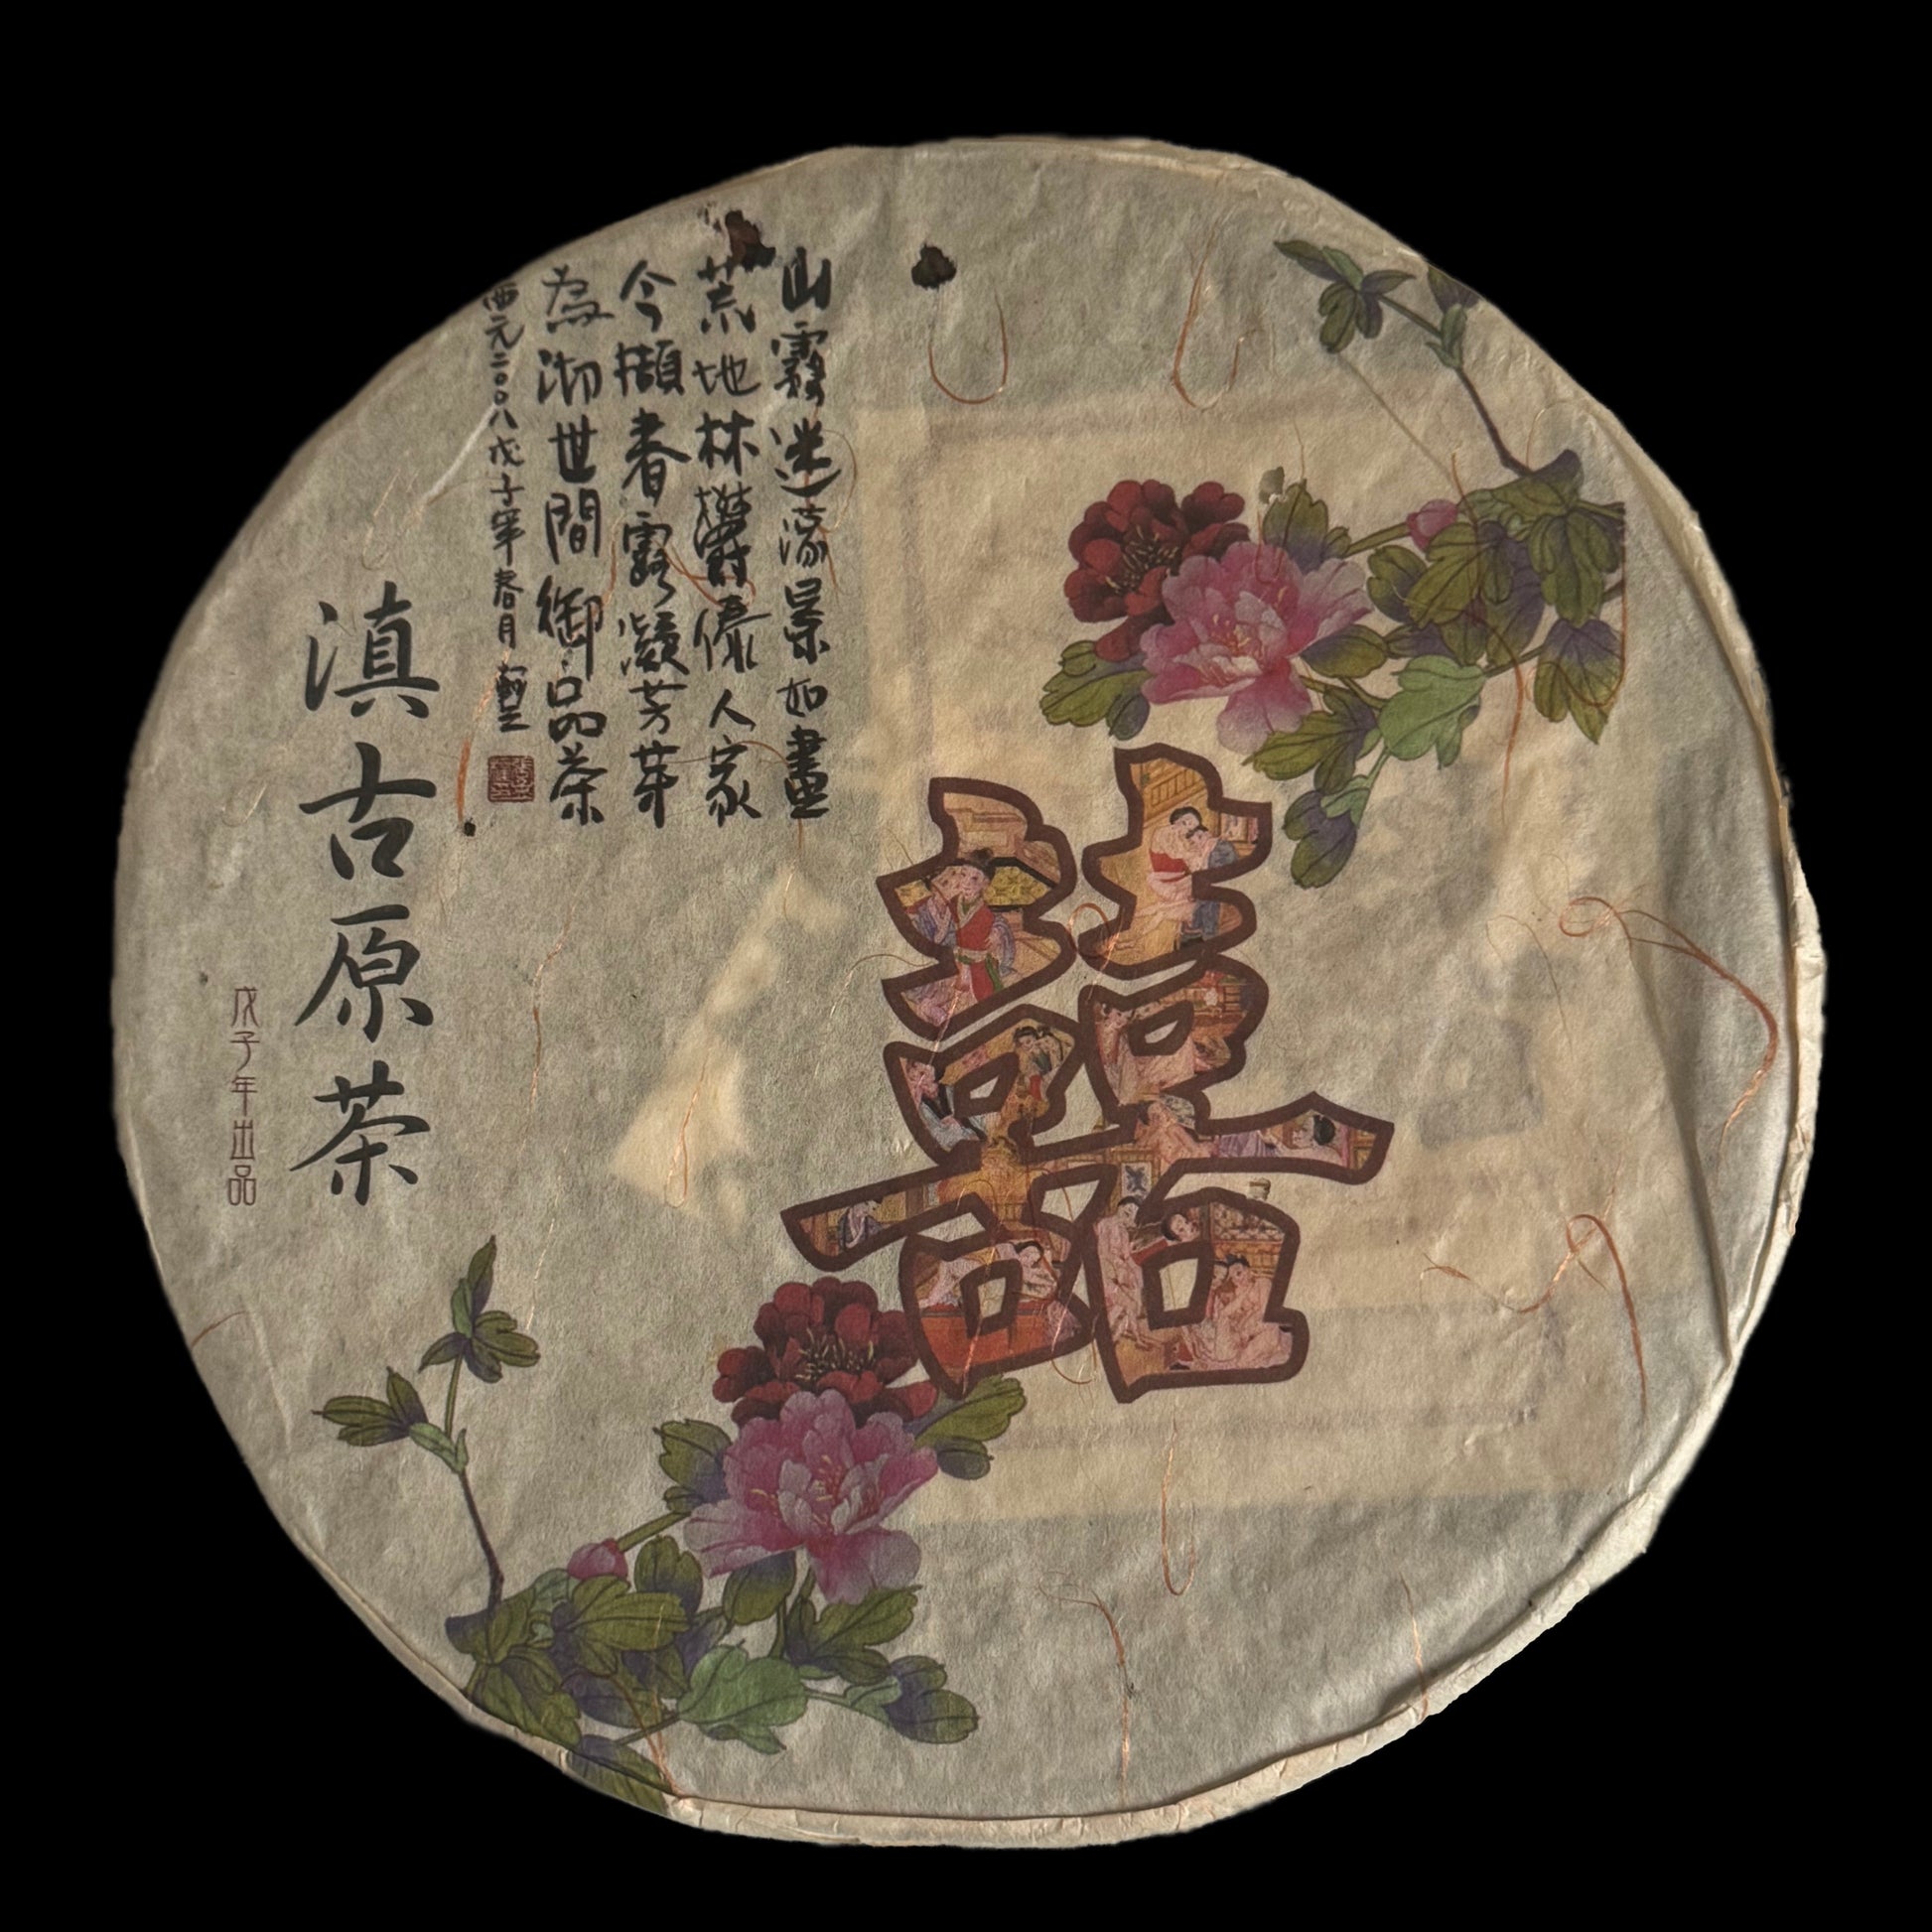 山霧迷濛景如畫
荒地林鬱傣人家
今擷春露凝芳芽
為沏世間御品茶
西元二〇〇八戊子年春月
滇古原茶
戊子年出品
囍